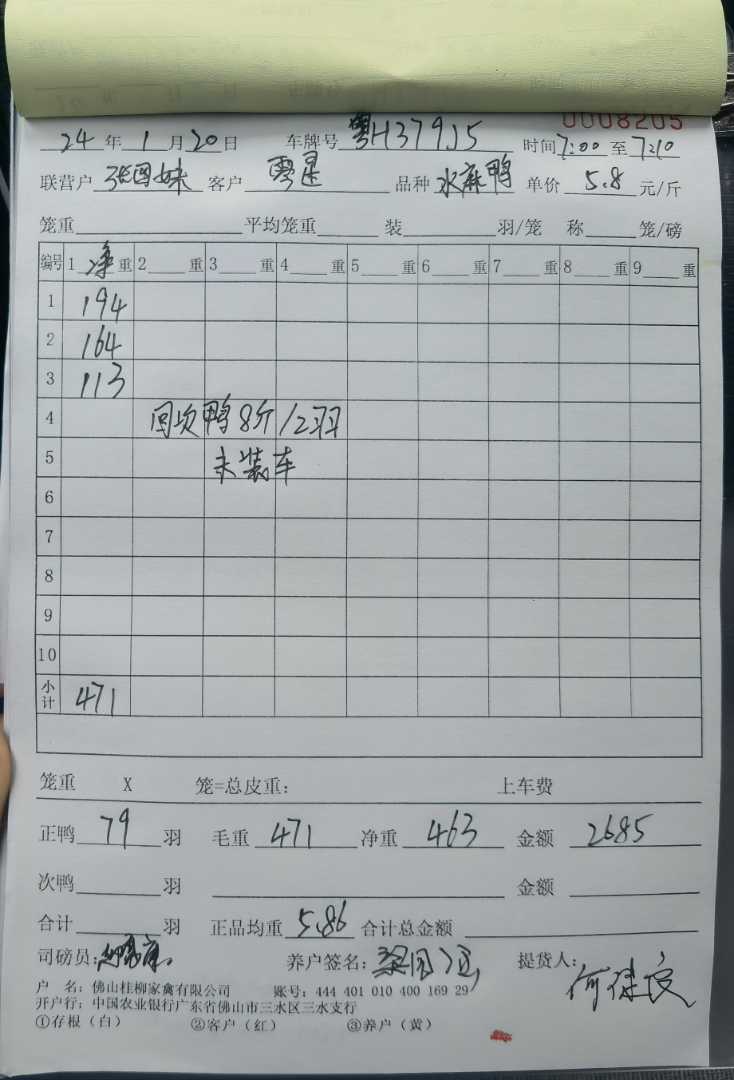 0008205
24 年 1 月 20 日 车牌号 粤H379J5 时间 7:00 至 7:10
联营户 张国妹 客户 零星 品种 水麻鸭 单价 5.8 元/斤
笼重 平均笼重 装 羽/笼 称 笼/磅
编号 1 净 重 2 重 3 重 4 重 5 重 6 重 7 重 8 重 9 重
1 194
2 164
3 113
4 回次鸭 8斤/2羽
5 未装车
6
7
8
9
10
小计 471
笼重 X 笼=总皮重: 上车费
正鸭 79 羽 毛重 471 净重 463 金额 2685
次鸭 羽 金额
合计 羽 正品均重 5.86 合计总金额
司磅员: 养户签名: 提货人: 何健良
户 名: 佛山桂柳家禽有限公司 账号: 444 401 010 400 169 29
开户行: 中国农业银行广东省佛山市三水区三水支行
①存根(白) ②客户(红) ③养户(黄)